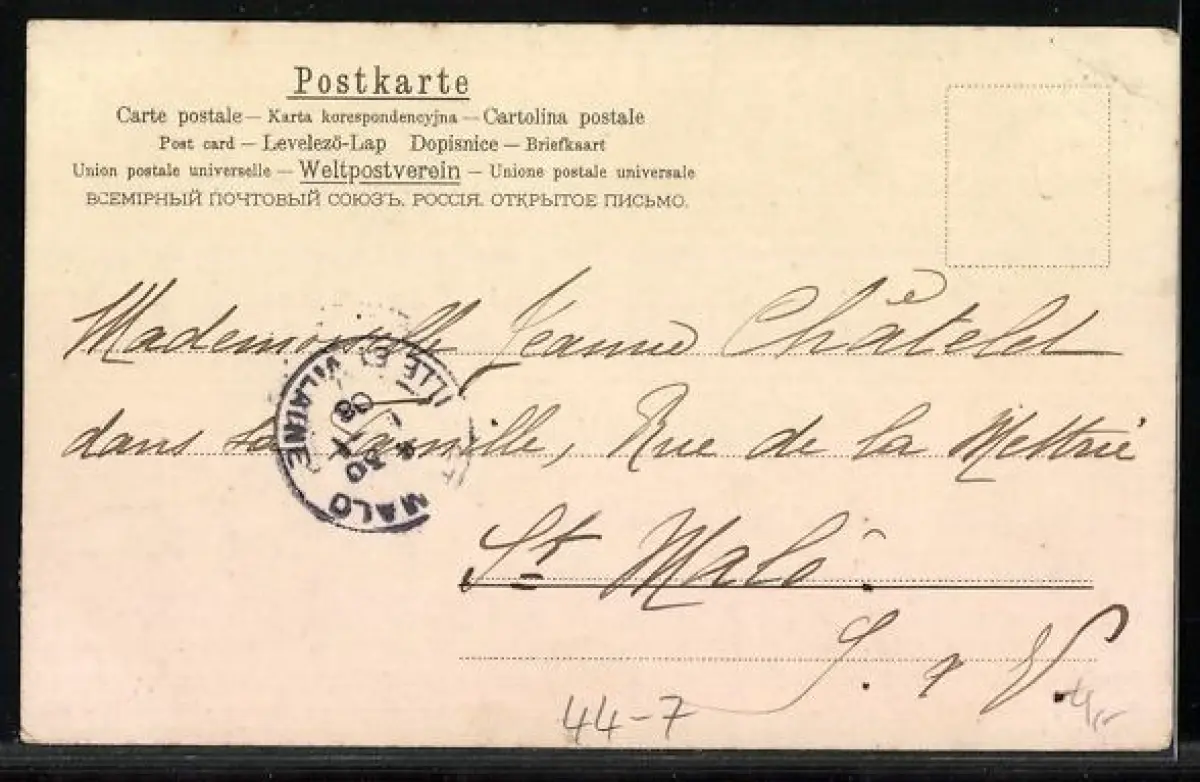 Postkarte
Carte postale — Karta korespondencyjna — Cartolina postale
Post card — Levelező-Lap Dopisnice — Briefkaart
Union postale universelle — Weltpostverein — Unione postale universale
ВСЕМІРНЫЙ ПОЧТОВЫЙ СОЮЗЪ. РОССІЯ. ОТКРЫТОЕ ПИСЬМО.
Mademoiselle Jeanne Châtelet
dans sa famille, Rue de la Mettrie
St Malo.
I. & V.
44-7
MALO
ILLE ET VILAINE
30
03